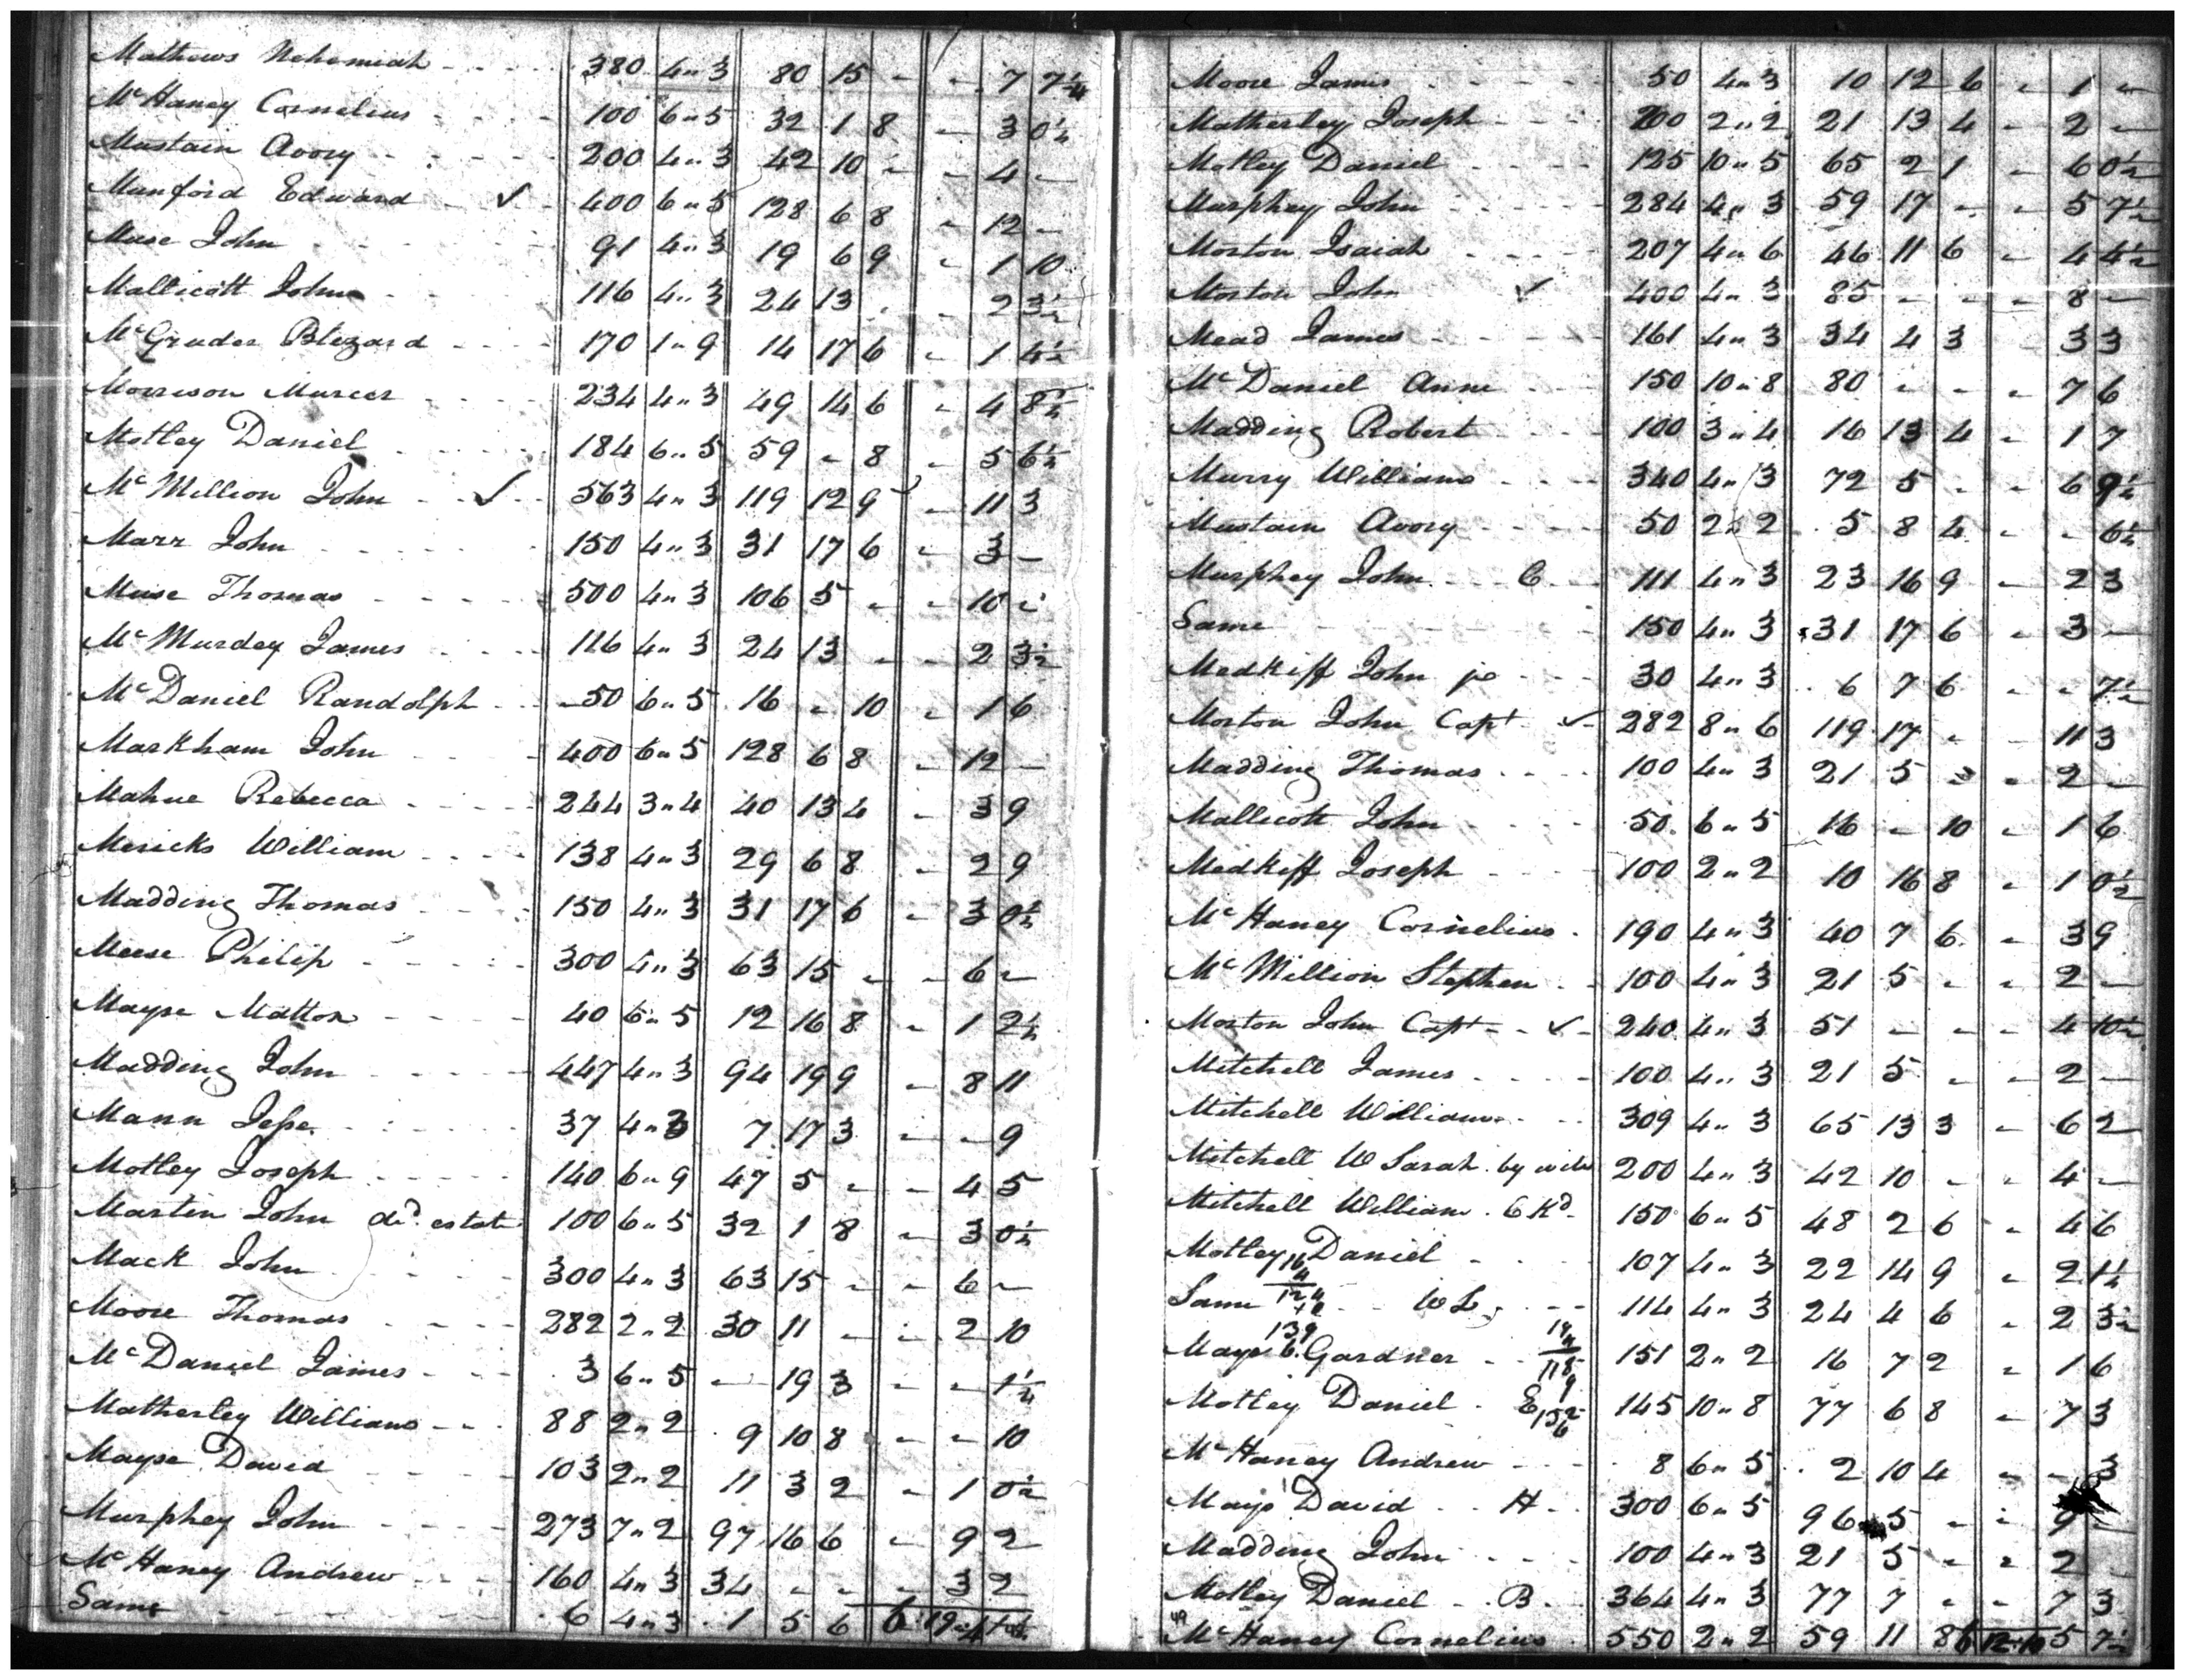 Mathews Nehemiah 380 4 " 3 80 15 - - 7 7 1/4
McHaney Cornelius 100 6 " 5 32 1 8 - 3 0 1/2
Mustain Avory 200 4 " 3 42 10 - - 4 -
Munford Edward ✓ 400 6 " 5 128 6 8 - 12 -
Muse John 91 4 " 3 19 6 9 - 1 10
Mallicott John 116 4 " 3 24 13 - - 2 3 1/2
McGruder Blizard 170 1 " 9 14 17 6 - 1 4 1/2
Morrison Murcer 234 4 " 3 49 14 6 - 4 8 1/2
Motley Daniel 184 6 " 5 59 - 8 - 5 6 1/2
McMillion John ✓ 563 4 " 3 119 12 9 - 11 3
Marr John 150 4 " 3 31 17 6 - 3 -
Muse Thomas 500 4 " 3 106 5 - - 10 -
McMurdey James 116 4 " 3 24 13 - - 2 3 1/2
McDaniel Randolph 50 6 " 5 16 - 10 - 1 6
Markham John 400 6 " 5 128 6 8 - 12 -
Mahue Rebecca 244 3 " 4 40 13 4 - 3 9
Mericks William 138 4 " 3 29 6 8 - 2 9
Madding Thomas 150 4 " 3 31 17 6 - 3 0 1/2
Meese Philip 300 4 " 3 63 15 - - 6 -
Mayse Mattox 40 6 " 5 12 16 8 - 1 2 1/2
Madding John 447 4 " 3 94 19 9 - 8 11
Mann Jesse 37 4 " 3 7 17 3 - - 9
Motley Joseph 140 6 " 9 47 5 - - 4 5
Martin John decd. estate 100 6 " 5 32 1 8 - 3 0 1/2
Mack John 300 4 " 3 63 15 - - 6 -
Moore Thomas 282 2 " 2 30 11 - - 2 10
McDaniel James 3 6 " 5 - 19 3 - - 1 1/4
Matherley William 88 2 " 2 9 10 8 - - 10
Mayse David 103 2 " 2 11 3 2 - 1 0 1/2
Murphey John 273 7 " 2 97 16 6 - 9 2
McHaney Andrew 160 4 " 3 34 - - - 3 2
Same 6 4 " 3 1 5 6 6 19
Moore James 50 4 " 3 10 12 6 - 1 -
Matherley Joseph 200 2 " 2 21 13 4 - 2 -
Motley Daniel 125 10 " 5 65 2 1 - 6 0 1/2
Murphey John 284 4 " 3 59 17 - - 5 7 1/2
Morton Isaiah 207 4 " 6 46 11 6 - 4 4 1/2
Morton John ✓ 400 4 " 3 85 - - - 8 -
Mead James 161 4 " 3 34 4 3 - 3 3
McDaniel Anne 150 10 " 8 80 - - - 7 6
Madding Robert 100 3 " 4 16 13 4 - 1 7
Murry William 340 4 " 3 72 5 - - 6 9 1/2
Mustain Avory 50 2 " 2 5 8 4 - - 6 1/2
Murphey John C 111 4 " 3 23 16 9 - 2 3
Same 150 4 " 3 31 17 6 - 3 -
Medkiff John jr 30 4 " 3 6 7 6 - - 7 1/2
Morton John Capt ✓ 282 8 " 6 119 17 - - 11 3
Madding Thomas 100 4 " 3 21 5 - - 2 -
Mallicott John 50 6 " 5 16 - 10 - 1 6
Medkiff Joseph 100 2 " 2 10 16 8 - 1 0 1/2
McHaney Cornelius 190 4 " 3 40 7 6 - 3 9
McMillion Stephen 100 4 " 3 21 5 - - 2 -
Morton John Capt ✓ 240 4 " 3 51 - - - 4 10 1/2
Mitchell James 100 4 " 3 21 5 - - 2 -
Mitchell William 309 4 " 3 65 13 3 - 6 2
Mitchell W Sarah by 200 4 " 3 42 10 - - 4 -
Mitchell William C Kd 150 6 " 5 48 2 6 - 4 6
Motley Daniel 107 4 " 3 22 14 9 - 2 1 1/2
Same W L 114 4 " 3 24 4 6 - 2 3 1/2
139
Mayse Gardner 151 2 " 2 16 7 2 - 1 6
Motley Daniel E 145 10 " 8 77 6 8 - 7 3
McHaney Andrew 8 6 " 5 2 10 4 - - 3
Mays David H 300 6 " 5 96 5 - - 9 -
Madding John 100 4 " 3 21 5 - - 2 -
Motley Daniel B 364 4 " 3 77 7 - - 7 3
McHaney Cornelius 550 2 " 2 59 11 8 5 7 1/2